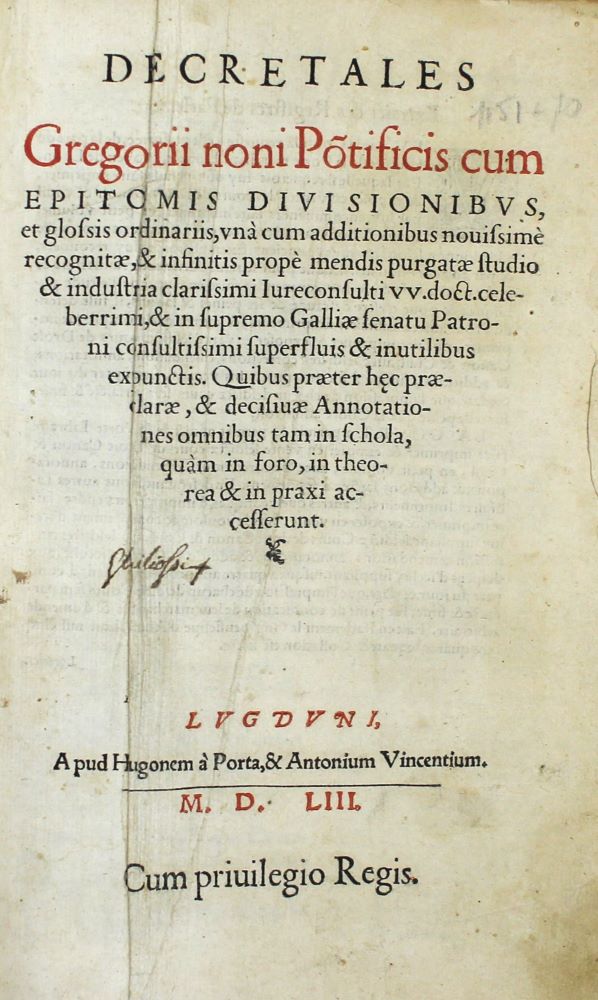 DECRETALES
Gregorii noni Põtificis cum
EPITOMIS DIVISIONIBVS,
et gloſsis ordinariis,vnà cum additionibus nouiſsimè
recognitæ,& infinitis propè mendis purgatæ ſtudio
& induſtria clariſsimi Iureconſulti vv.doct.cele-
berrimi,& in ſupremo Galliæ ſenatu Patro-
ni conſultiſsimi ſuperfluis & inutilibus
expunctis. Quibus præter hęc præ-
claræ, & deciſiuæ Annotatio-
nes omnibus tam in ſchola,
quàm in foro, in theo-
rea & in praxi ac-
ceſſerunt.
LVGDVNI,
Apud Hugonem à Porta,& Antonium Vincentium.
M. D. LIII.
Cum priuilegio Regis.